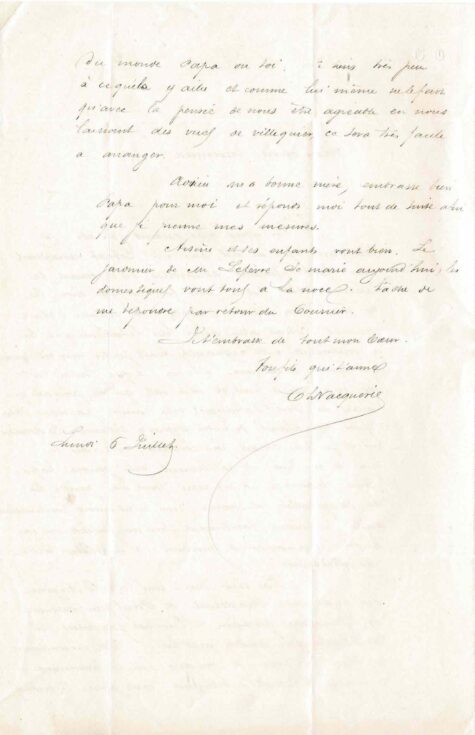 du monde Papa ou toi. tiens très peu
à ce qu'elle y aille et comme lui même ne le fait
qu'avec la pensée de nous être agréable en nous
laissant des vues de villequier, ce sera très facile
a arranger.
Adieu ma bonne mère, embrasse bien
Papa pour moi et réponds moi tout de suite afin
que je prenne mes mesures.
Arsène et ses enfants vont bien. Le
jardinier de Mr Lefevre se marie aujourd'hui, les
domestiques vont tous à la noce. tache de
me repondre par retour du Courrier.
Je t'embrasse de tout mon Cœur.
Ton fils qui t'aime
Ch Vacquerie
Lundi 6 Juillet